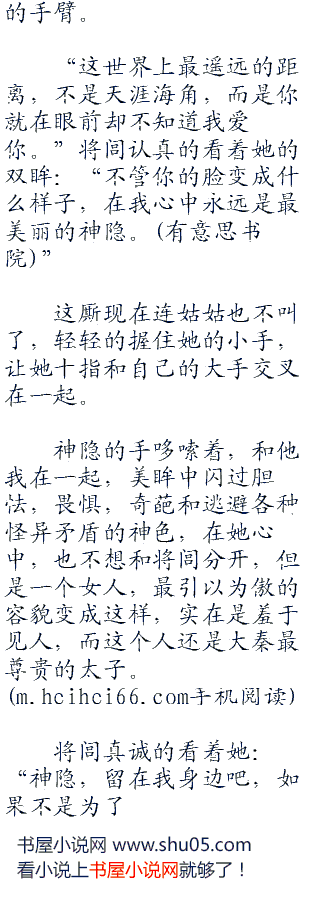 的手臂。
“这世界上最遥远的距
离，不是天涯海角，而是你
就在眼前却不知道我爱
你。”将闾认真的看着她的
双眸：“不管你的脸变成什
么样子，在我心中永远是最
美丽的神隐。(有意思书
院)”
这厮现在连姑姑也不叫
了，轻轻的握住她的小手，
让她十指和自己的大手交叉
在一起。
神隐的手哆嗦着，和他
我在一起，美眸中闪过胆
怯，畏惧，奇葩和逃避各种
怪异矛盾的神色，在她心
中，也不想和将闾分开，但
是一个女人，最引以为傲的
容貌变成这样，实在是羞于
见人，而这个人还是大秦最
尊贵的太子。
(m.hcihci66.com手机阅读)
将闾真诚的看着她：
“神隐，留在我身边吧，如
果不是为了
书屋小说网 www.shu05.com
看小说上书屋小说网就够了！